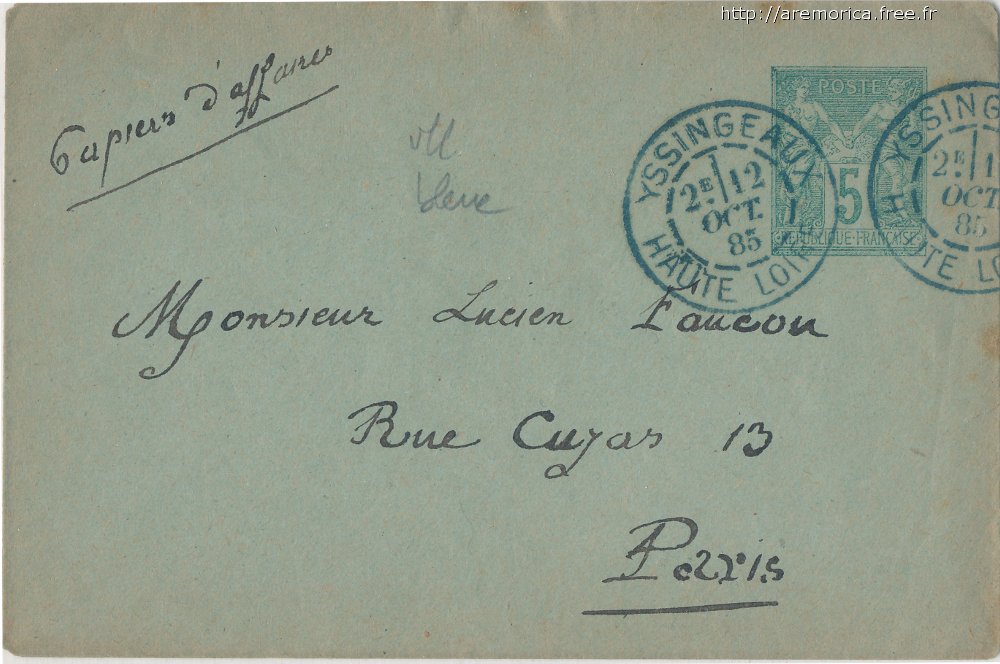 http://aremorica.free.fr
Papiers d'affaires
POSTE
5
REPUBLIQUE·FRANÇAISE
YSSINGEAUX
2E 12
OCT.
85
HAUTE LOIRE
YSSINGE
2E 1
OCT
85
HAUTE LO
Monsieur Lucien Faucon
Rue Cujas 13
Parris